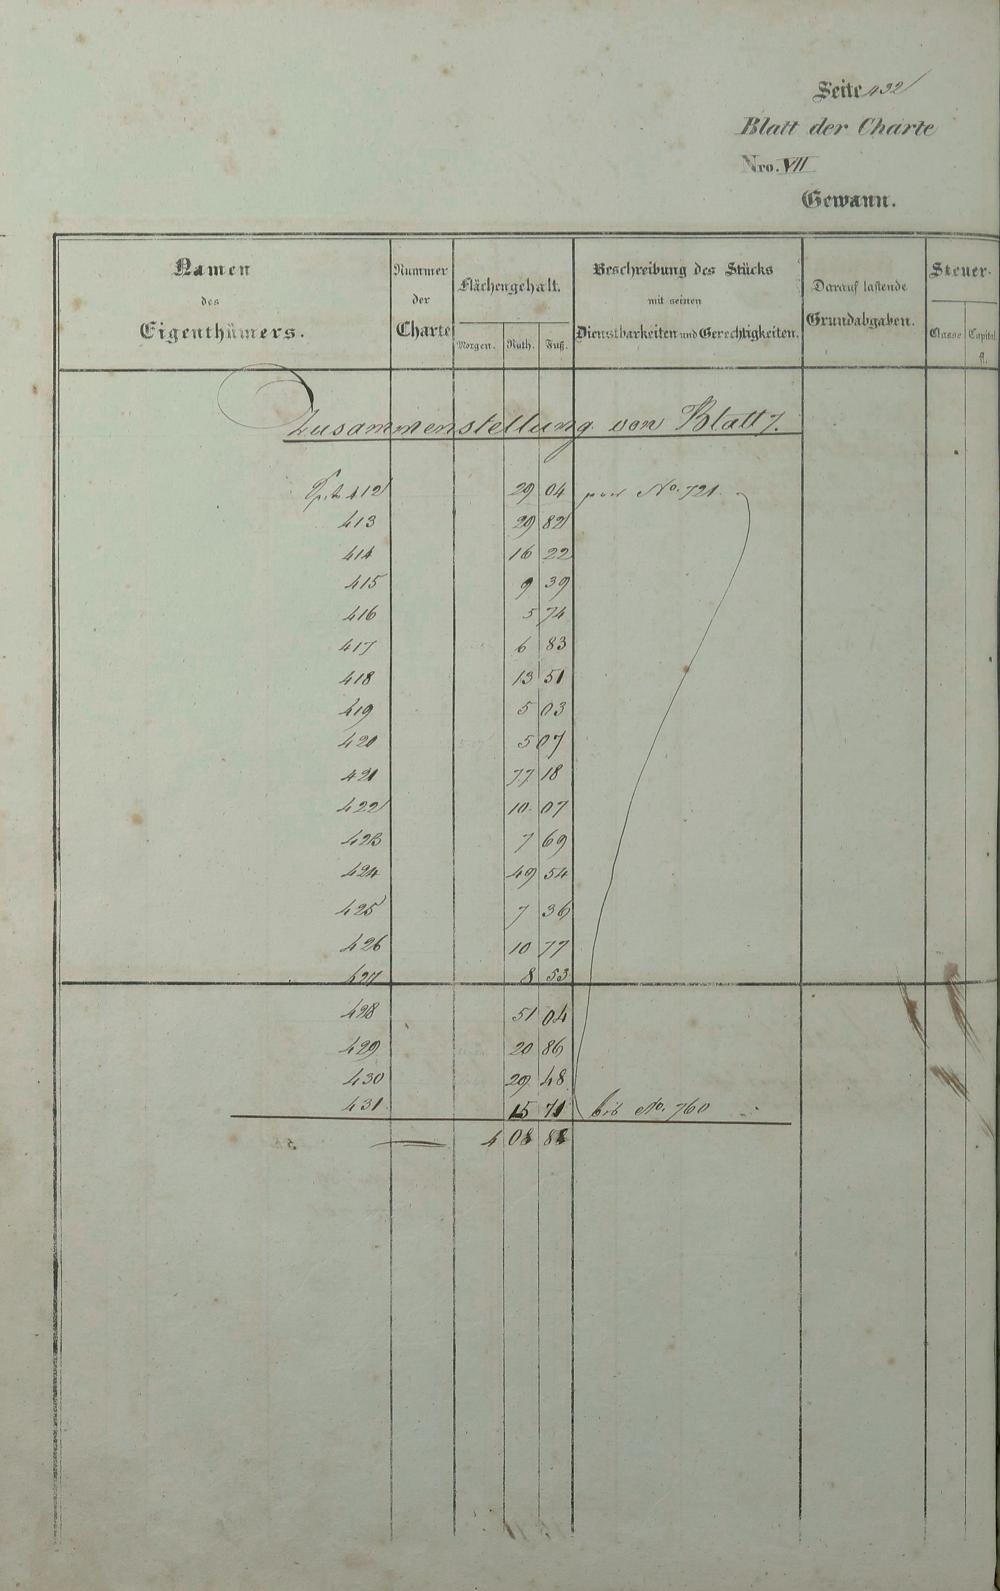 Seite 432
Blatt der Charte
Nro. VII
Gewann.
Namen des Eigenthümers.
Nummer der Charte
Flächengehalt.
Morgen. Ruth. Fuß.
Beschreibung des Stücks mit seinen Dienstbarkeiten und Gerechtigkeiten.
Darauf lastende Grundabgaben.
Steuer-
Classe Capital fl.
Zusammenstellung von Blatt 7.
412 29 04 No. 721
413 29 82
414 16 22
415 9 39
416 5 74
417 6 83
418 13 51
419 5 03
420 5 07
421 77 18
422 10 07
423 7 69
424 49 54
425 7 36
426 10 77
427 8 53
428 51 04
429 20 86
430 29 48
431 15 71 bis No. 760
4 08 88